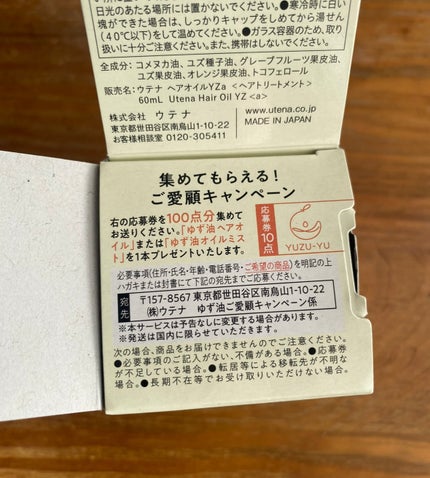 日光のあたる場所には置かないでください。●寒冷時に白い
塊ができた場合は、しっかりキャップをしめてから湯せん
(40℃以下)をして温めてください。●ガラス容器のため、取り
扱いに十分ご注意ください。また、携帯はしないでください。
全成分:コメヌカ油、ユズ種子油、グレープフルーツ果皮油、
ユズ果皮油、オレンジ果皮油、トコフェロール
販売名:ウテナ ヘアオイルYZa <ヘアトリートメント>
60mL Utena Hair Oil YZ <a>
株式会社 ウテナ
東京都世田谷区南烏山1-10-22
お客様相談室 0120-305411
www.utena.co.jp
MADE IN JAPAN
集めてもらえる!
ご愛顧キャンペーン
右の応募券を100点分集めて
お送りください。「ゆず油ヘアオ
イル」または「ゆず油オイルミス
ト」を1本プレゼントいたします。
応募券
10点
YUZU-YU
必要事項(住所・氏名・年齢・電話番号・ご希望の商品)を明記の上
ハガキまたは封書にて下記の宛先までご応募ください。
宛先
〒157-8567 東京都世田谷区南烏山1-10-22
(株)ウテナ ゆず油ご愛顧キャンペーン係
※本サービスは予告なしに変更する場合があります。
※発送は国内に限らせていただきます。
次の場合、商品をお届けできませんのでご注意ください。
●必要事項のご記入がない、不備がある場合。●応募券
が不足している場合。●転居等による移転先が不明な
場合。●長期不在等でお受け取りいただけない場合。